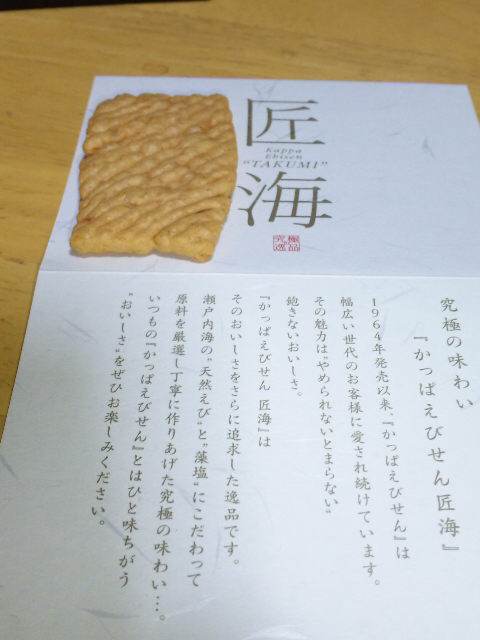 匠海
Kappa
Ebisen
"TAKUMI"
究極
逸品
究極の味わい
『かっぱえびせん匠海』
1964年発売以来、『かっぱえびせん』は
幅広い世代のお客様に愛され続けています。
その魅力は"やめられないとまらない"
飽きないおいしさ。
『かっぱえびせん 匠海』は
そのおいしさをさらに追求した逸品です。
瀬戸内海の"天然えび"と"藻塩"にこだわって
原料を厳選し丁寧に作りあげた究極の味わい…。
いつもの『かっぱえびせん』とはひと味ちがう
"おいしさ"をぜひお楽しみください。